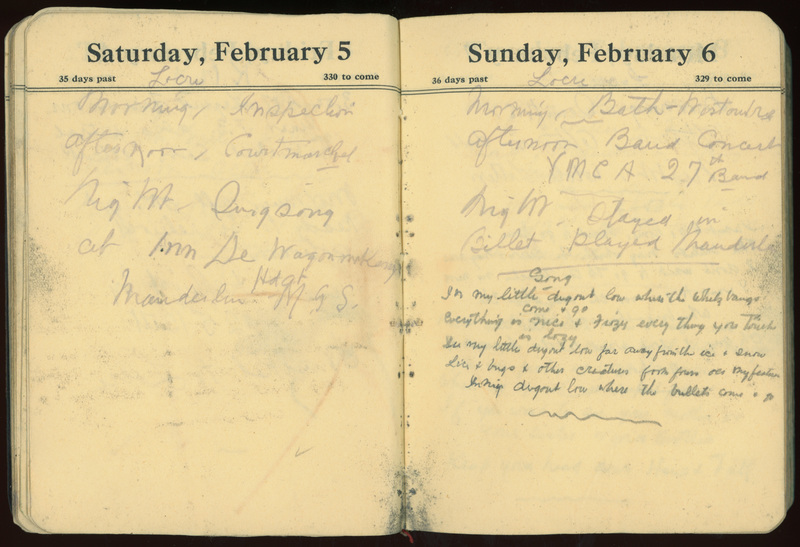 Saturday, February 5
35 days past 330 to come
Locre
Morning, Inspection
afternoon, Courtmarchel
Night. Singsong
at Inn De Wagonmakers
Hdqr
Manderlin
Sunday, February 6
36 days past 329 to come
Locre
Morning, Bath - Westoutre
afternoon Band Concert
YMCA 27th Band
Night. Stayed in
Billet Played Manderlin
Song
In my little dugout low where the whizbangs
come + go
Everything is nice + Frozy every thing you touch
is lozy
In my little dugout low far away from the ice + snow
Lice + bugs + other creatures over my feature
In my dugout low where the bullets come + go